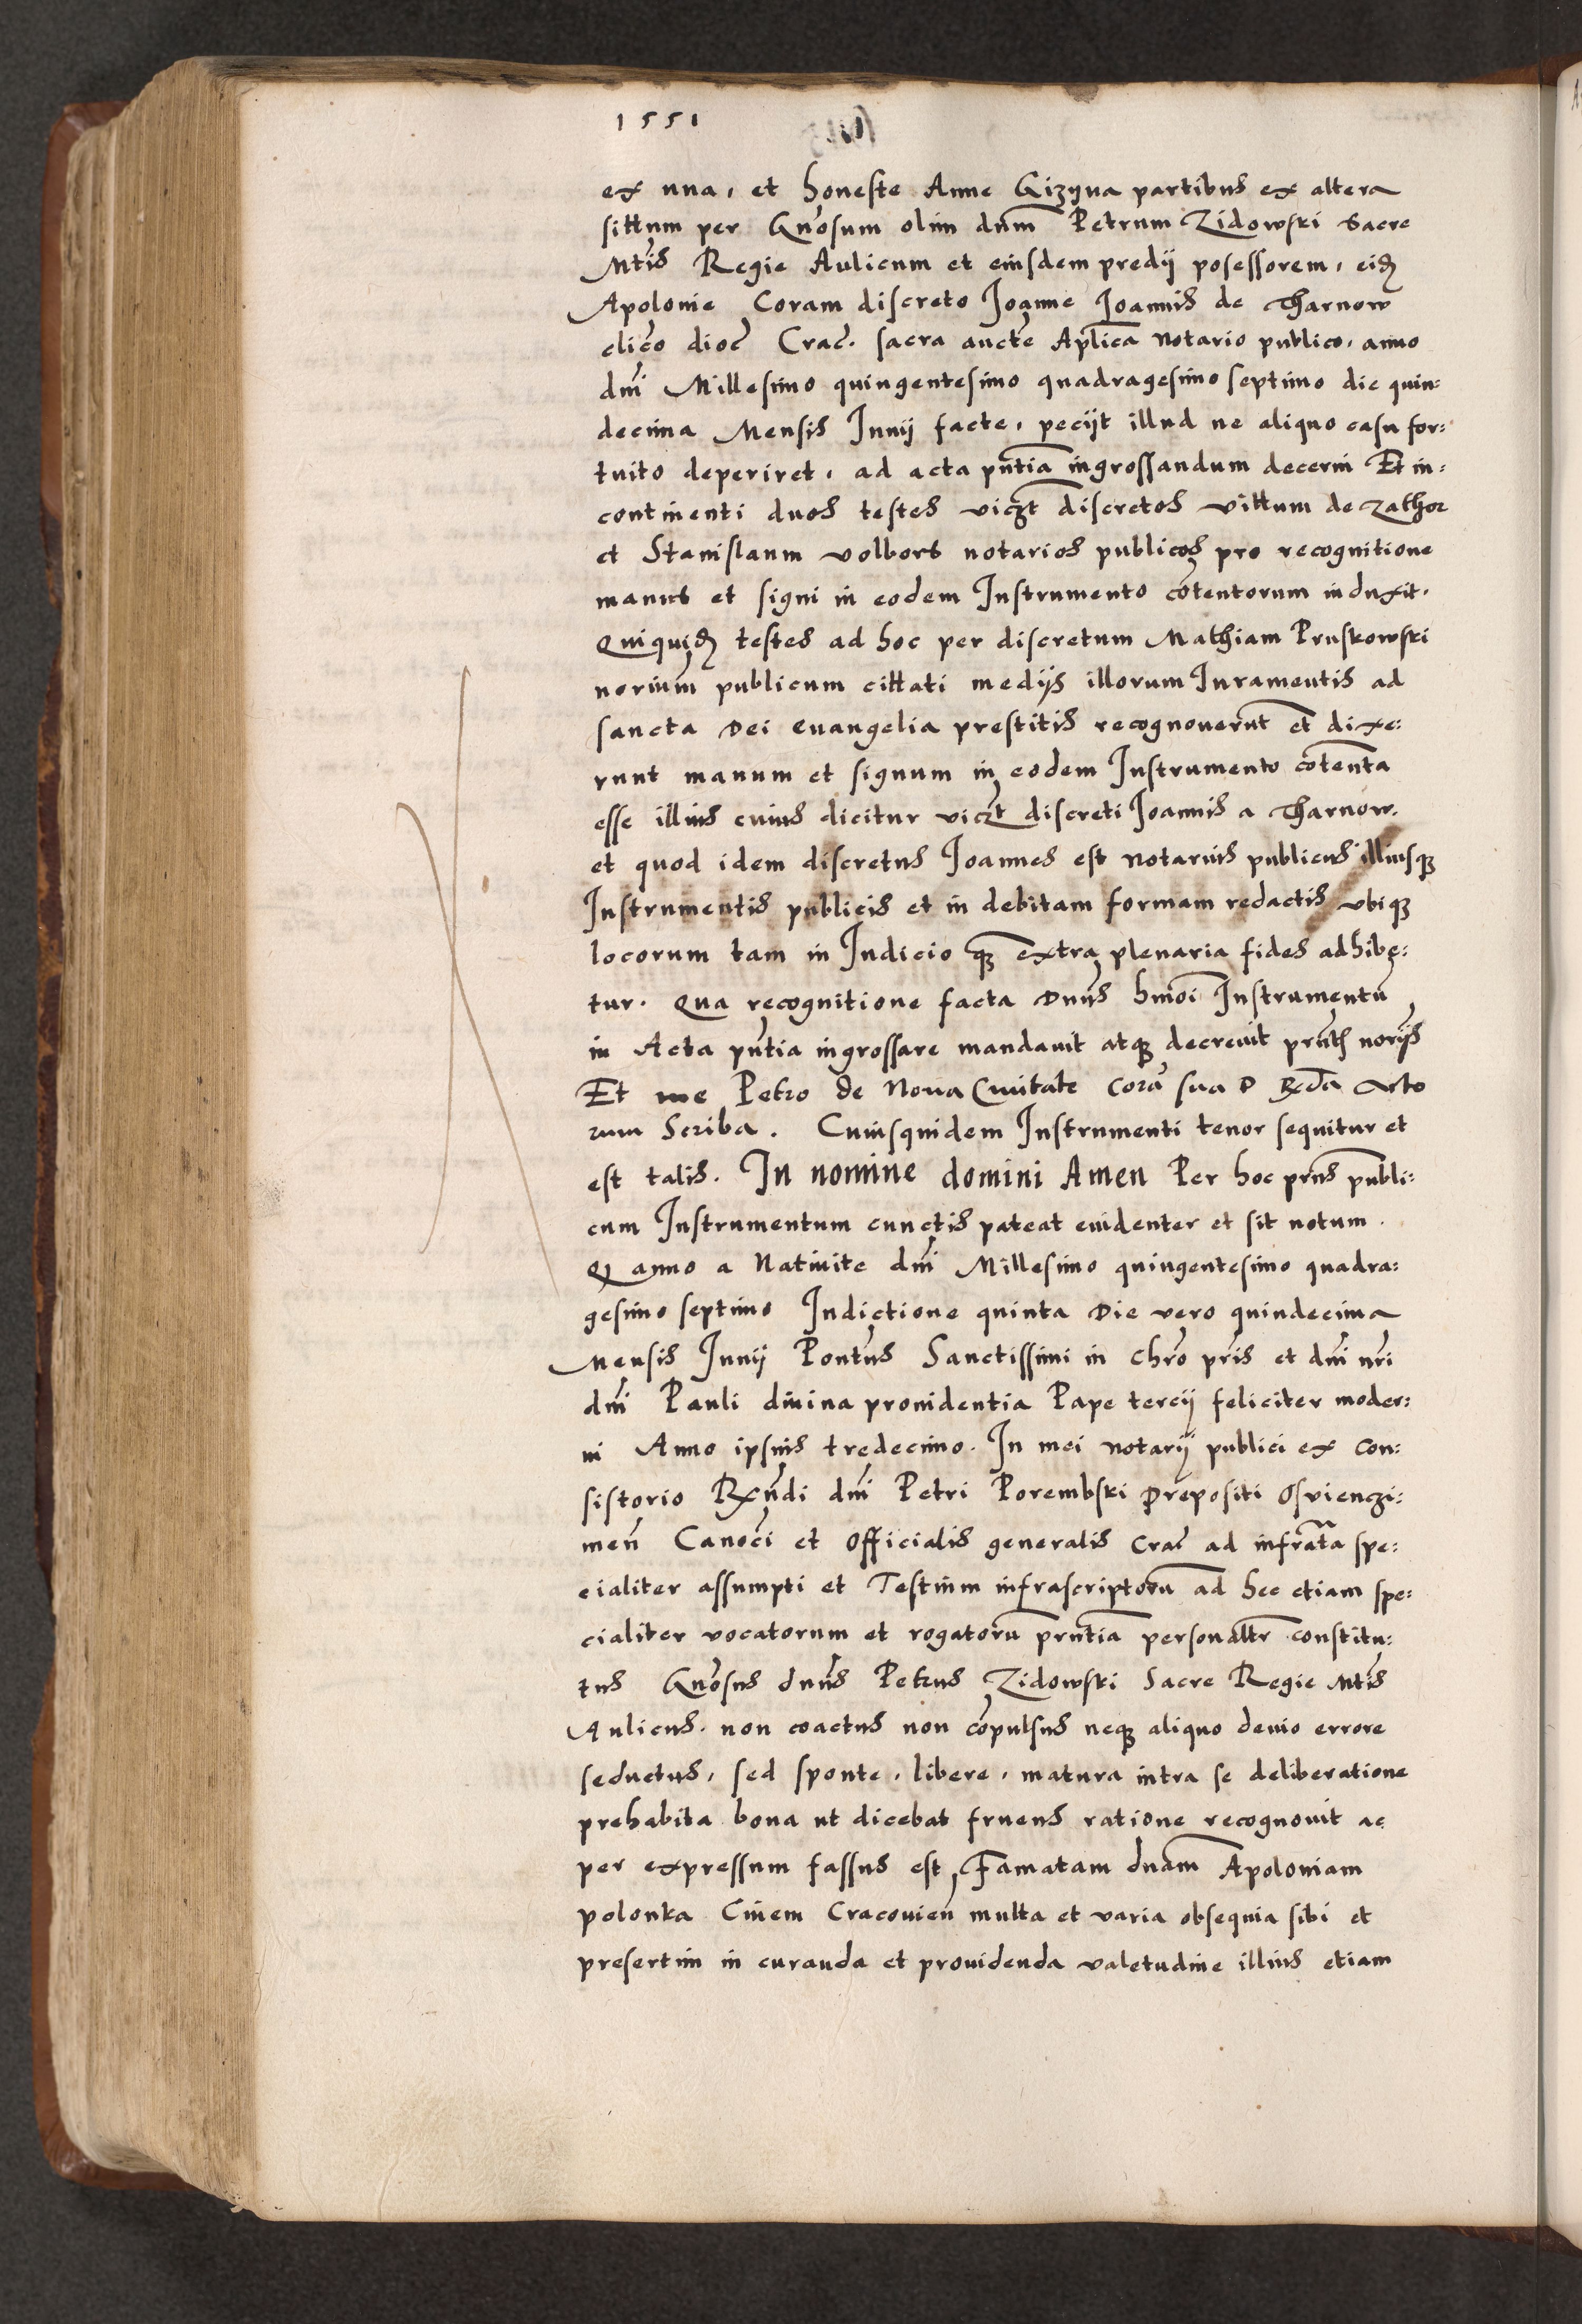 1551
ex una, et honeste Anne Gizyna partibus ex altera
sittum per Gn̄osum olim dn̄m Petrum Zidowski Sacre
Mtis Regie Aulicum et eiusdem predij posessorem, eid
Apolonie Coram discreto Joanne Joannis de Tharnow
clic̄o dioc̄ Crac̄. sacra aucte Aplica Notario publico, anno
dn̄i Millesimo quingentesimo quadragesimo septimo die quin:
decima Mensis Junij facte, pecijt illud ne aliquo casu for:
tuito deperiret, ad acta pn̄tia ingrossandum decerni Et in:
continenti duos testes viczt discretos Vittum de Zathor
et Stanislaum Volbors notarios publicos pro recognitione
manus et signi in eodem Instrumento cōtentorum induxit.
Quiquid testes ad hoc per discretum Mathiam Pruskowski
norium publicum cittati medijs illorum Juramentis ad
sancta Dei Euangelia prestitis recognouerūt et dixe:
runt manum et signum in eodem Instrumento cōtenta
esse illius cuius dicitur viczt discreti Joannis a Tharnow.
et quod idem discretus Joannes est Notarius publicus illiusq
Instrumentis publicis et in debitam formam redactis ubiq
locorum tam in Judicio q̄ extra plenaria fides adhibe:
tur. Qua recognitione facta Dn̄us hmōi Instrumentū
in Acta pn̄tia ingrossare mandauit atq decreuit prn̄t norijs
Et me Petro de Noua Ciuitate Corā sua P Rda Acto
rum Scriba. Cuiusquidem Instrumenti tenor sequitur et
est talis. In nomine domini Amen Per hoc prn̄s publi:
cum Instrumentum cunctis pateat euidenter et sit notum.
Q anno a Natiuite dn̄i Millesimo quingentesimo quadra:
gesimo septimo Indictione quinta Die vero quindecima
Mensis Junij Pontus Sanctissimi in Chr̄o pr̄is et dn̄i nr̄i
dn̄i Pauli diuina prouidentia Pape tercij feliciter moder:
ni Anno ipsius tredecimo. In mei notarij publici ex Con:
sistorio Rx̄ndi dn̄i Petri Porembski Prepositi Osvienczi:
men̄ Canoc̄i et Officialis generalis Crac̄ ad infrāta spe:
cialiter assumpti et Testium infrascriptorū ad hec etiam spe:
cialiter vocatorum et rogatorū prn̄tia personaltr constitu:
tus Gn̄osus dn̄us Petrus Zidowski Sacre Regie Mtis
Aulicus. non coactus non cōpulsus neq aliquo deuio errore
seductus, sed sponte, libere, matura intra se deliberatione
prehabita bona ut dicebat fruens ratione recognouit ac
per expressum fassus est, Famatam dn̄am Apoloniam
polonka Ciuem Cracouien̄ multa et varia obsequia sibi et
presertim in curanda et prouidenda valetudine illius etiam